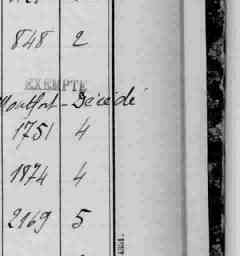 848 2
EXEMPTE
Montfort - Décédé
1751 4
1874 4
2169 5